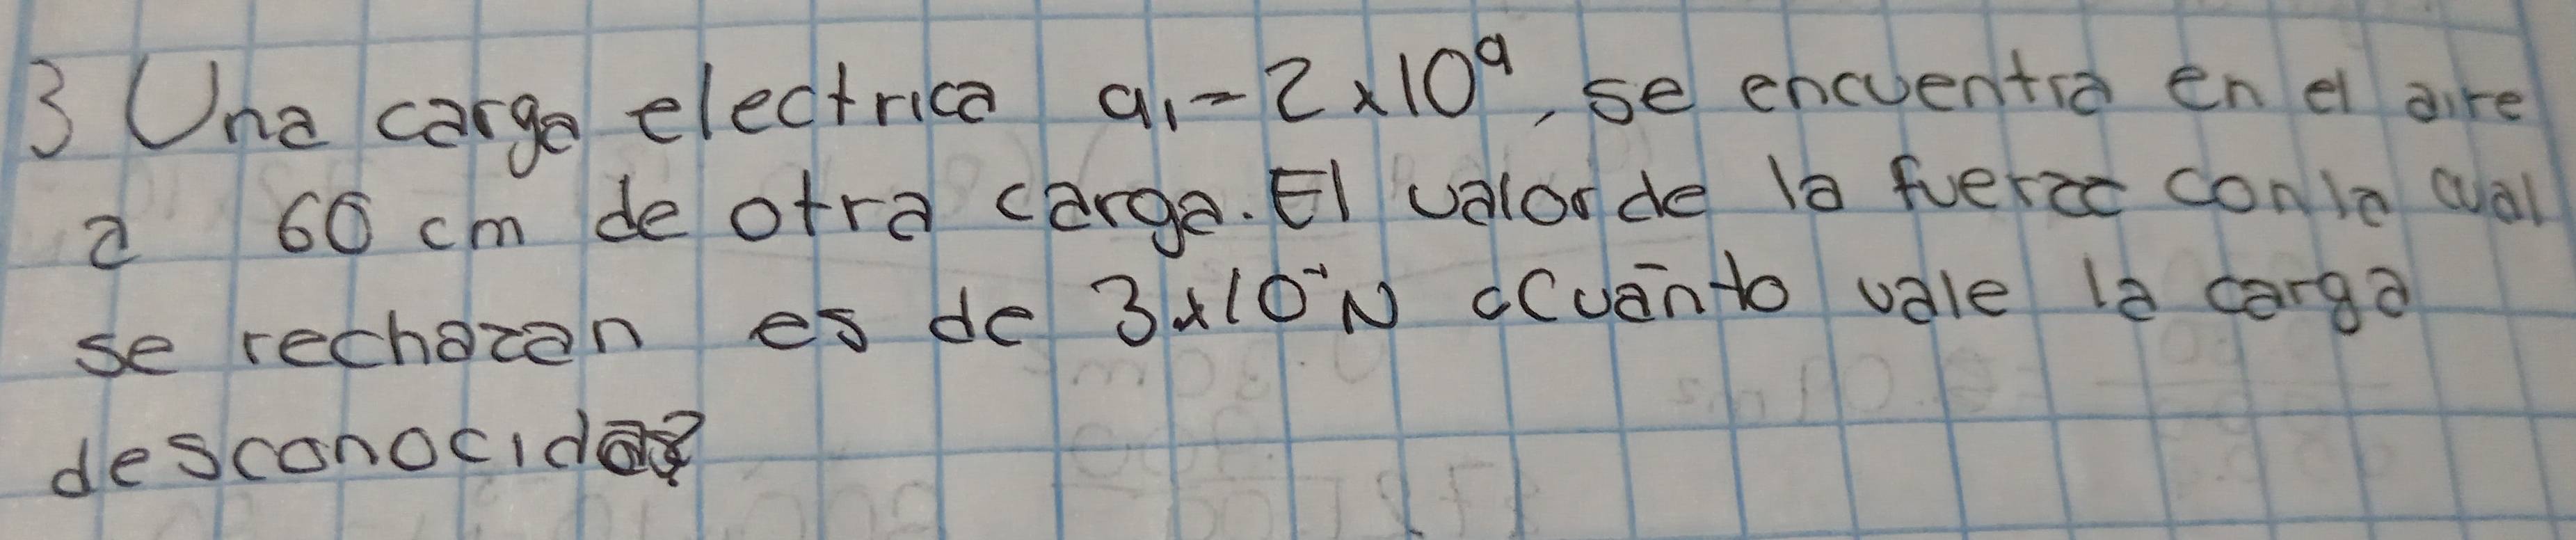 3 Una carga electrica q₁ = 2x10⁹, se encuentra en el aire
a 60 cm de otra carga. El valor de la fuerza con la cual
se rechazan es de 3x10⁻¹N ¿Cuánto vale la carga
desconocida?